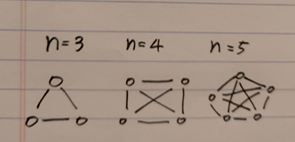 n=3 n=4 n=5